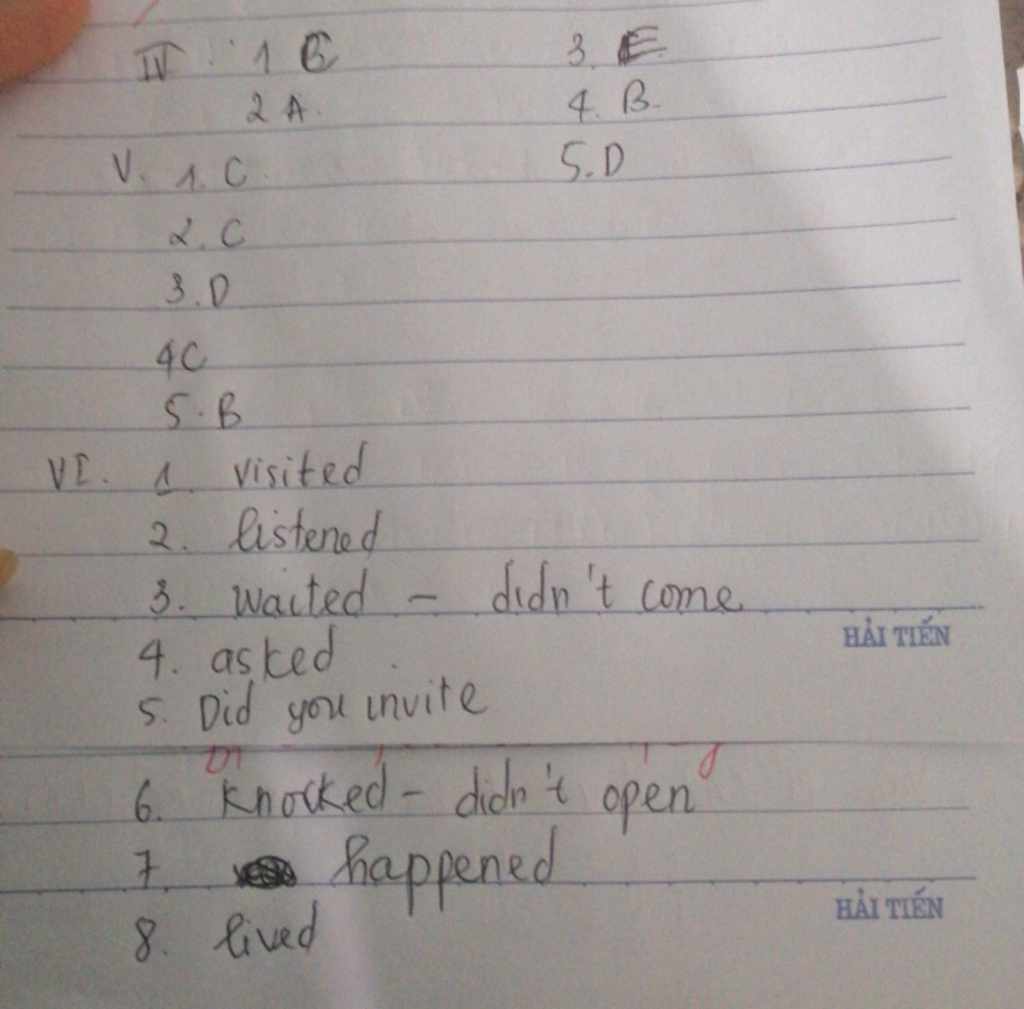 IV : 1 C 3. E
2 A. 4. B.
V. 1. C 5. D
2. C
3. D
4 C
5. B
VI. 1 visited
2. listened
3. waited - didn't come
HẢI TIẾN
4. asked
5. Did you invite
6. Knocked - didn't open
7 happened
HẢI TIẾN
8. lived